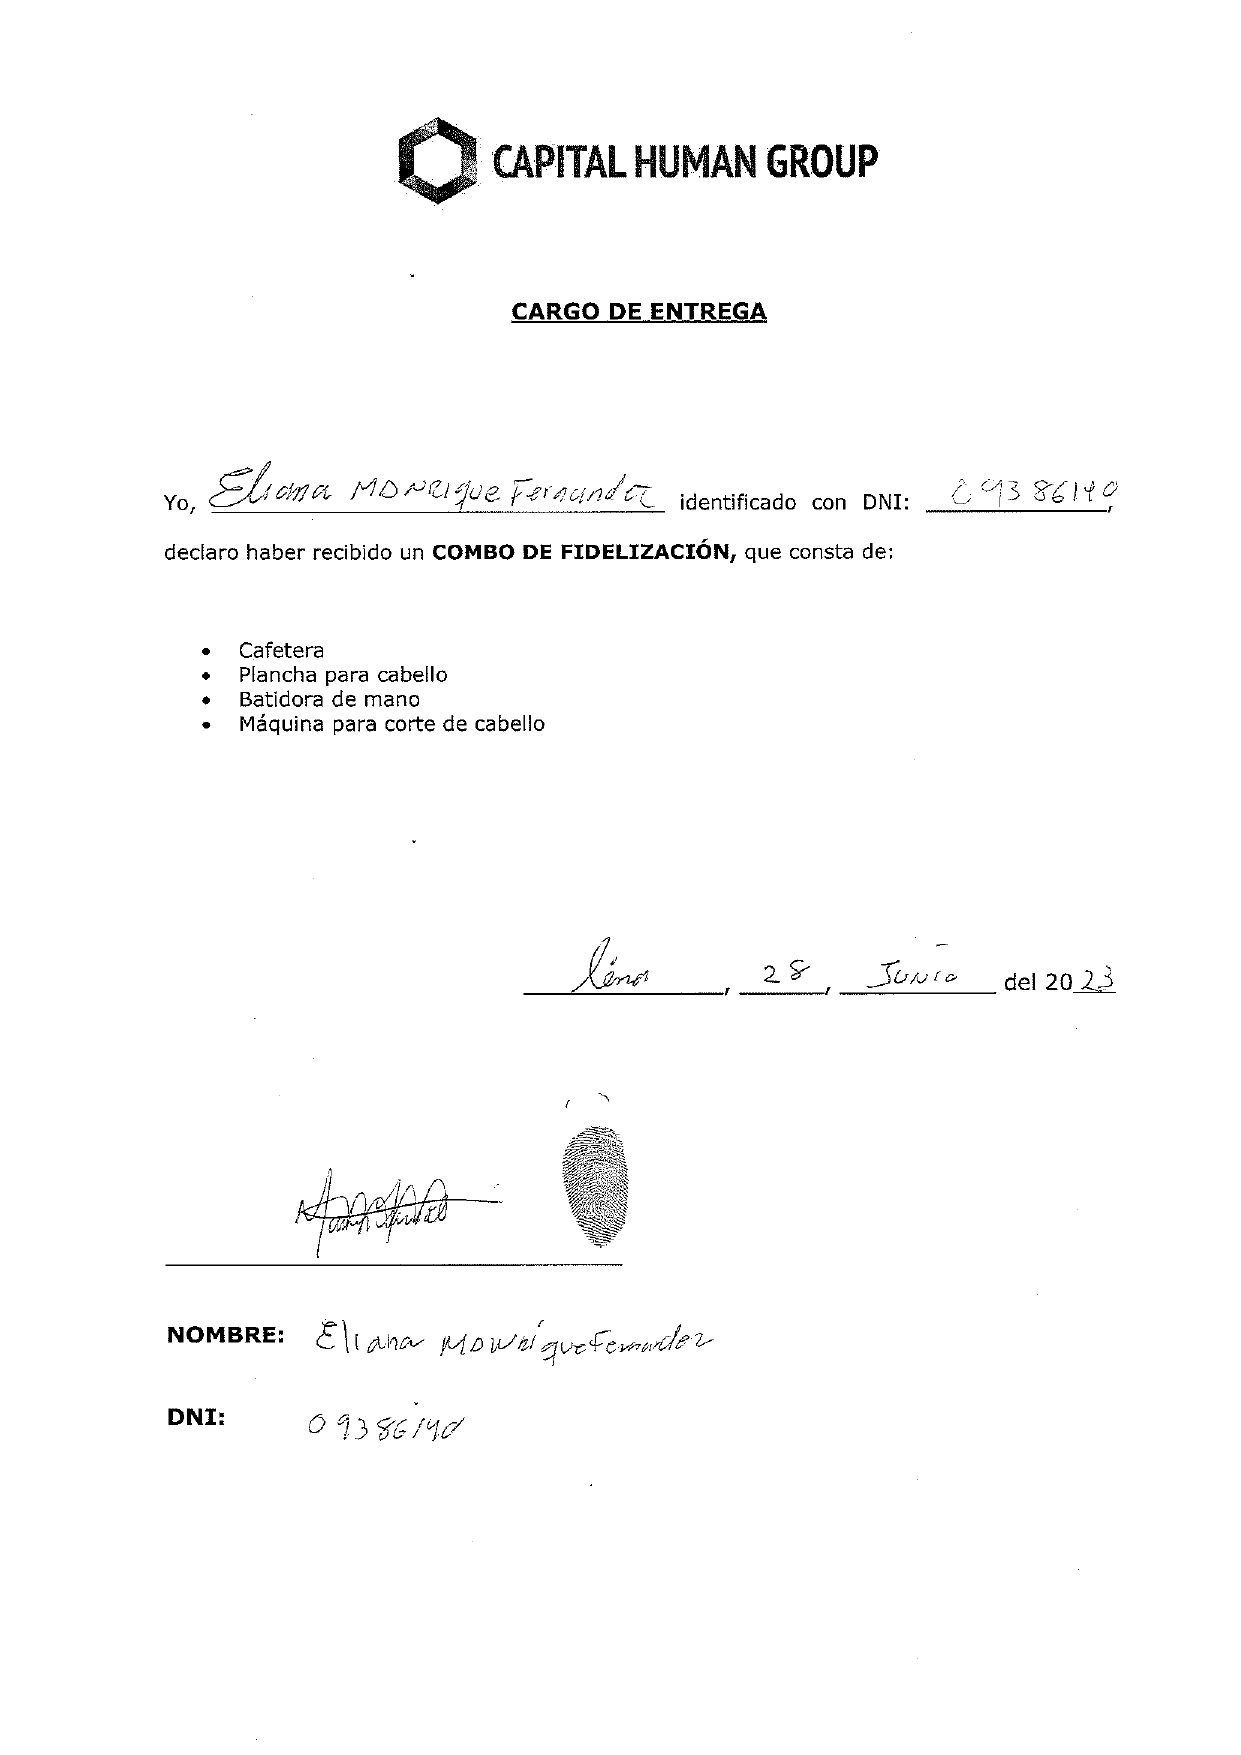 CAPITAL HUMAN GROUP
CARGO DE ENTREGA
Yo, Eliana MONRique Fernandez identificado con DNI: 09386140,
declaro haber recibido un COMBO DE FIDELIZACIÓN, que consta de:
• Cafetera
• Plancha para cabello
• Batidora de mano
• Máquina para corte de cabello
Lima, 28, Junio del 2023
NOMBRE: Eliana MONRique Fernandez
DNI: 09386140